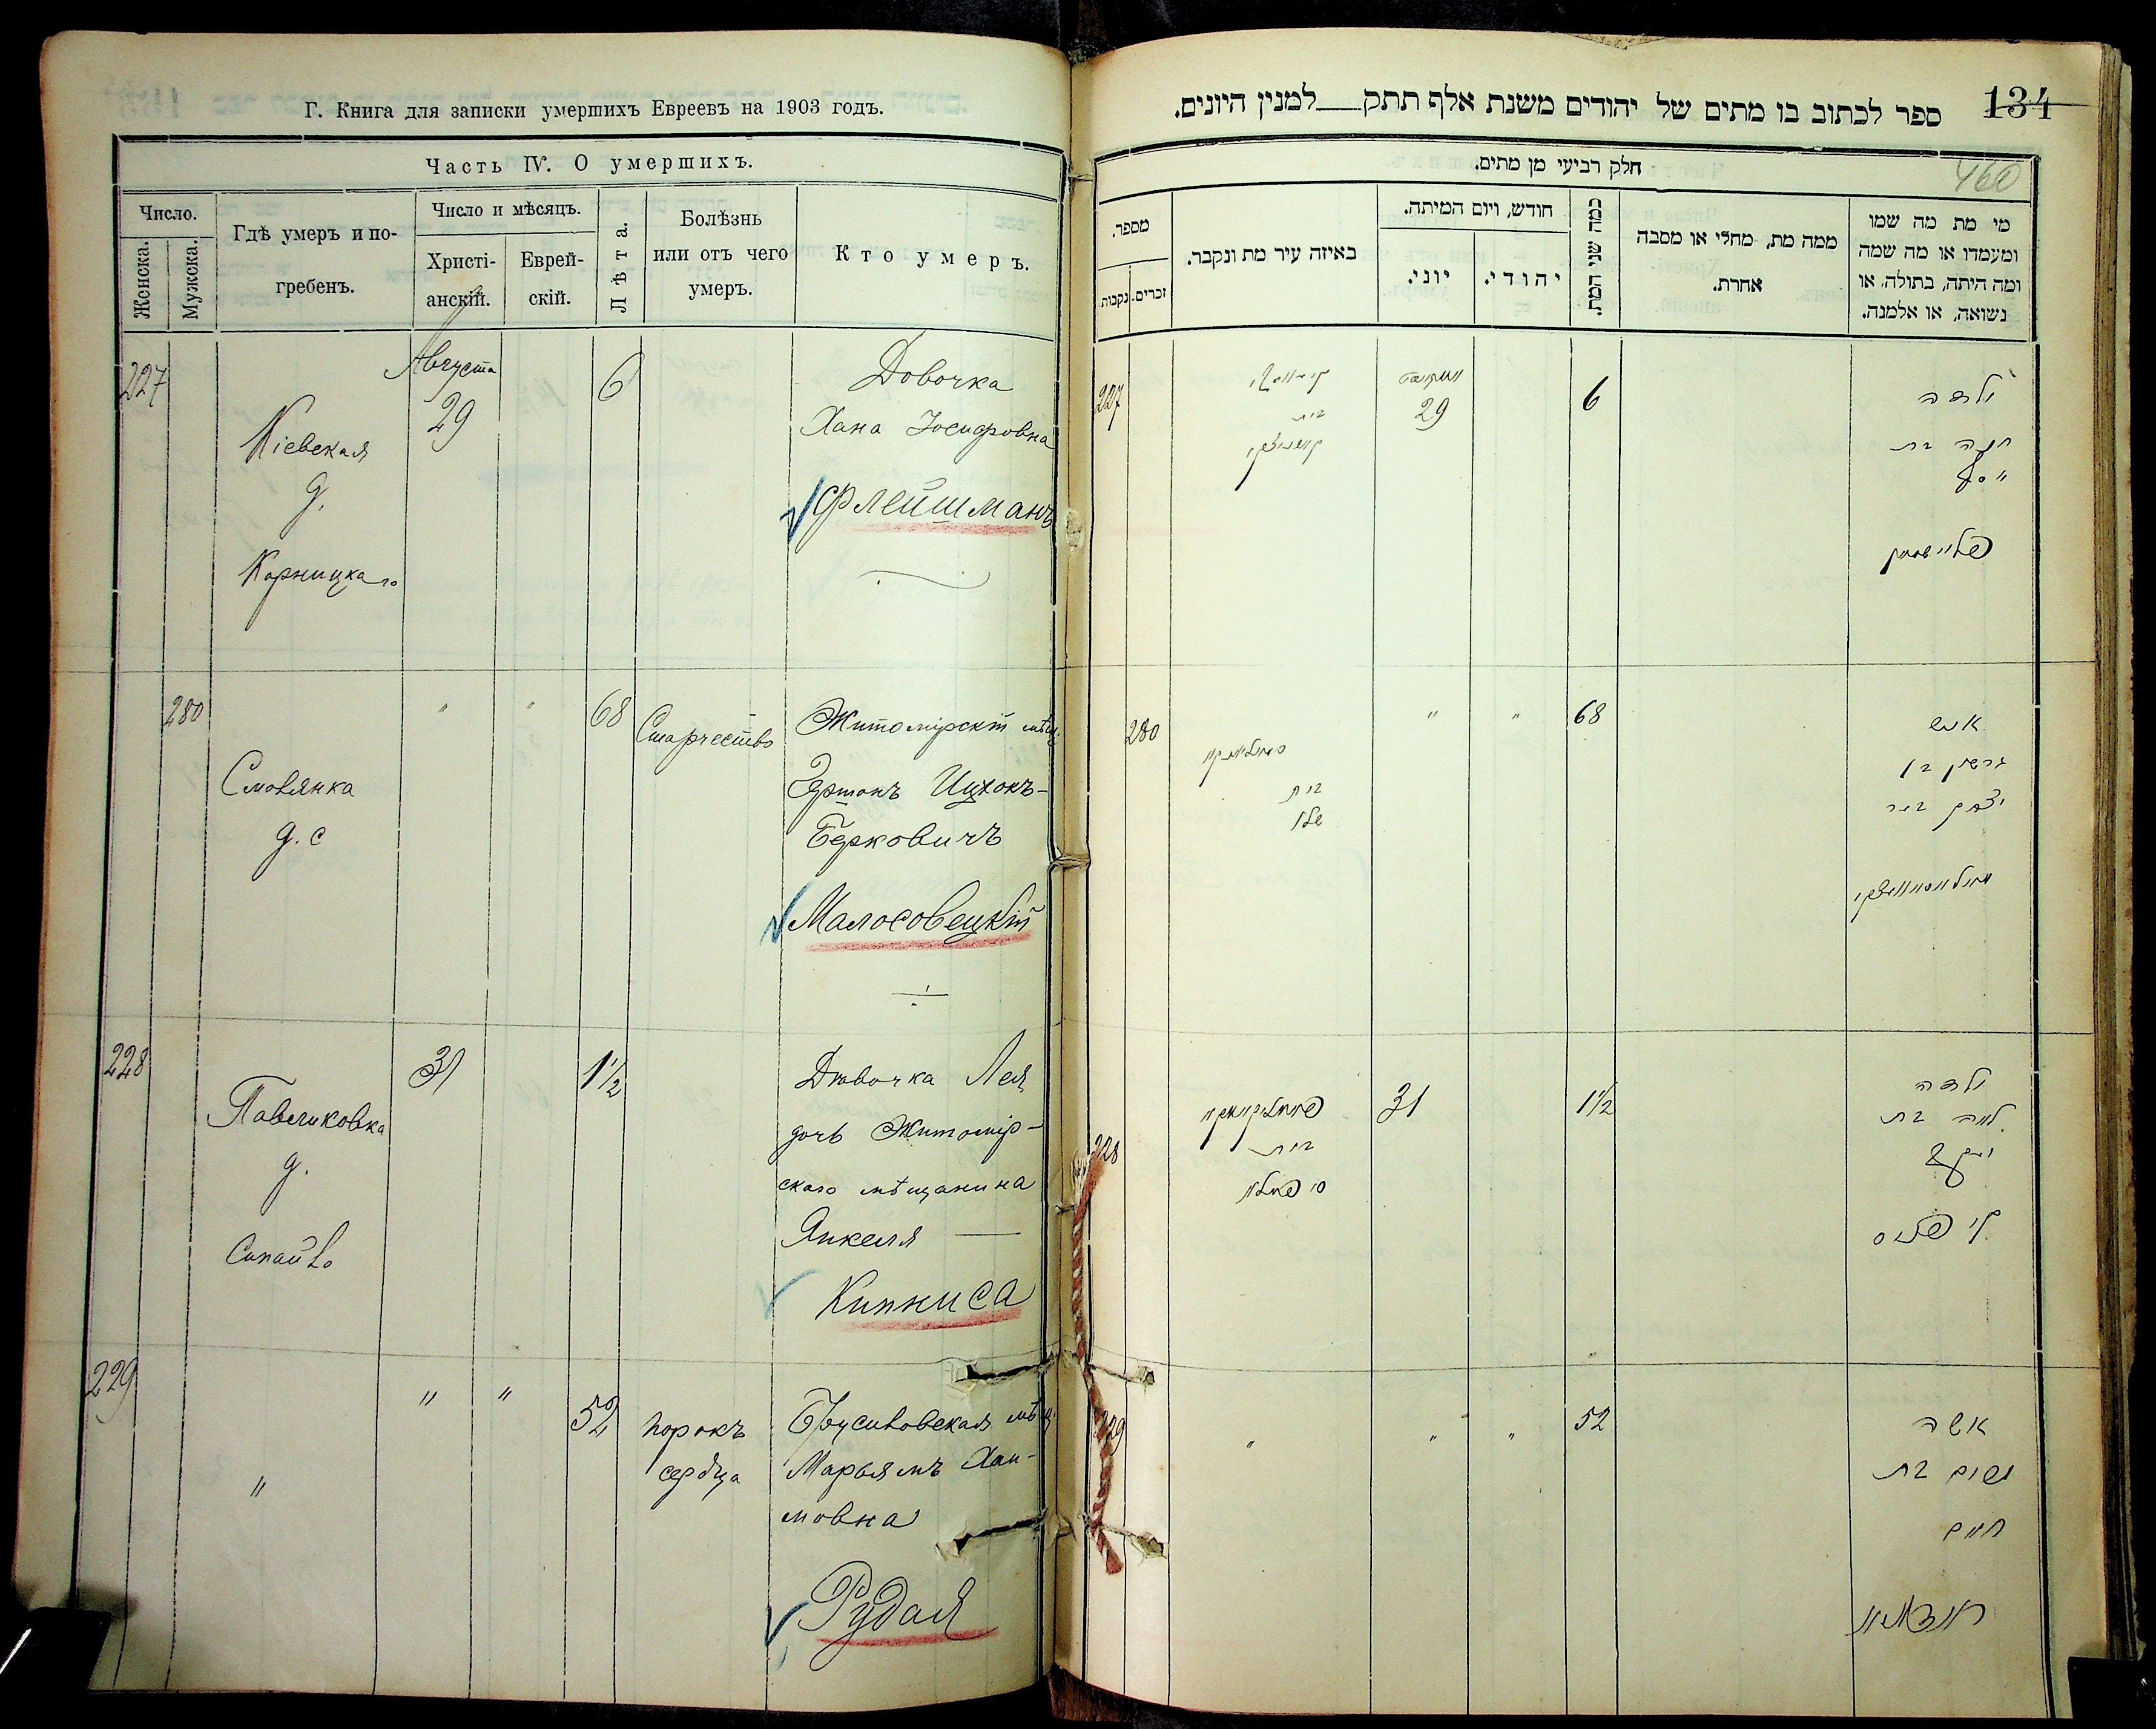 Г. Книга для записки умершихъ Евреевъ на 1903 годъ.
Часть IV. О умершихъ.
Число.
Женска.
Мужска.
Гдѣ умеръ и по-
гребенъ.
Число и мѣсяцъ.
Христі-
анскій.
Еврей-
скій.
Лѣта.
Болѣзнь
или отъ чего
умеръ.
Кто умеръ.
227
Кіевская
д.
Корницкаго
Августа
29
6
Девочка
Хана Іосифовна
Флейшманъ
280
Смолянка
д. с
" "
68
Старчество
Житомірскій мѣщ.
Гершонъ Ицхокъ-
Берковичъ
Малосовецкій
228
Павликовка
д.
31
1½
Дѣвочка Лея
дочь Житомір-
скаго мѣщанина
Янкеля
Кипниса
229
"
" "
52
порокъ
сердца
Брусиловская мѣщ.
Марьямъ Хаи-
мовна
Рудая
134
460
ספר לכתוב בו מתים של יהודים משנת אלף תתק למנין היונים.
חלק רביעי מן מתים.
מספר.
נקבות.
זכרים.
באיזה עיר מת ונקבר.
חודש, ויום המיתה.
יוני.
יהודי.
כמה שני המת.
ממה מת, מחלי או מסבה
אחרת.
מי מת מה שמו
ומעמדו או מה שמה
ומה היתה, בתולה, או
נשואה, או אלמנה.
227
בית
אווגוסט
29
6
ילדה
חנה בת
יוסף
פליישמאן
280
בית
שלו
" "
68
איש
גרשון בן
יצחק בער
228
בית
31
1½
ילדה
לאה בת
יעקב
קיפניס
229
"
" "
52
אשה
מרים בת
חיים